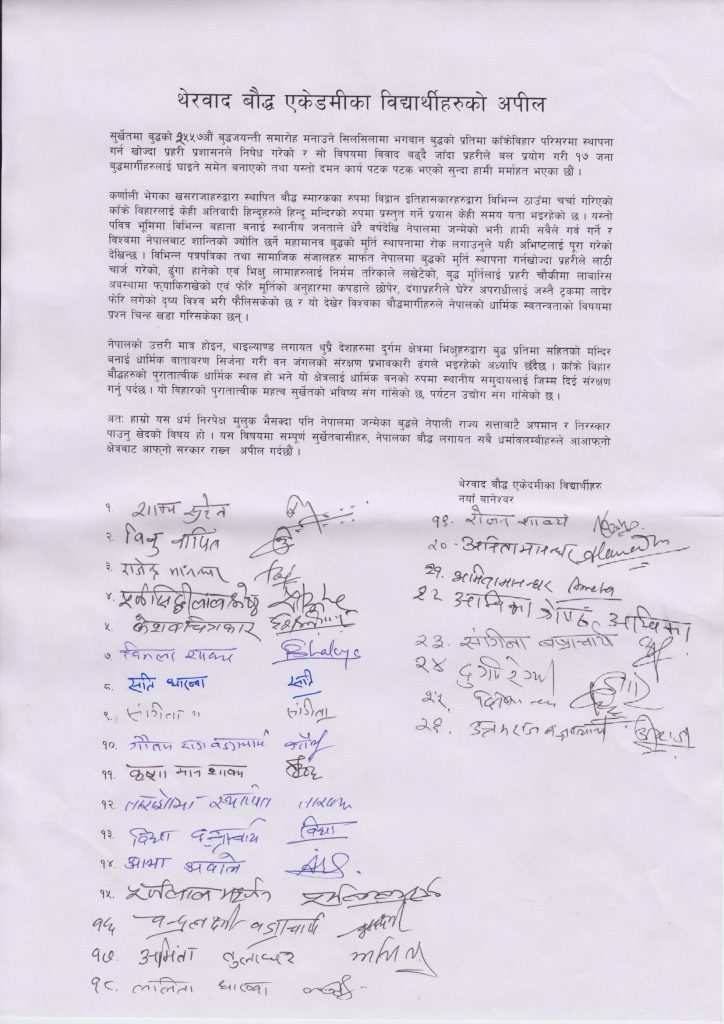 थेरवाद बौद्ध एकेडमीका विद्यार्थीहरुको अपील
सुर्खेतमा बुद्धको २५५७औं बुद्धजयन्ती समारोह मनाउने सिलसिलामा भगवान बुद्धको प्रतिमा काँक्रेविहार परिसरमा स्थापना
गर्न खोज्दा प्रहरी प्रशासनले निषेध गरेको र सो विषयमा विवाद बढ्दै जाँदा प्रहरीले बल प्रयोग गरी १७ जना
बुद्धमार्गीहरुलाई घाइते समेत बनाएको तथा यस्तो दमन कार्य पटक पटक भएको सुन्दा हामी मर्माहत भएका छौं ।
कर्णाली भेगका खसराजाहरुद्वारा स्थापित बौद्ध स्मारकका रुपमा विद्वान इतिहासकारहरुद्वारा विभिन्न ठाउँमा चर्चा गरिएको
काँक्रे विहारलाई केही अतिवादी हिन्दुहरुले हिन्दू मन्दिरको रुपमा प्रस्तुत गर्ने प्रयास केही समय यता भइरहेको छ । यस्तो
पवित्र भूमिमा विभिन्न बहाना बनाई स्थानीय जनताले धेरै वर्षदेखि नेपालमा जन्मेको भनी हामी सबैले गर्व गर्ने र
विश्वमा नेपालबाट शान्तिको ज्योति छर्ने महामानव बुद्धको मुर्ति स्थापनामा रोक लगाउनुले यही अभिष्टलाई पूरा गरेको
देखिन्छ । विभिन्न पत्रपत्रिका तथा सामाजिक संजालहरु मार्फत नेपालमा बुद्धको मुर्ति स्थापना गर्नखोज्दा प्रहरीले लाठी
चार्ज गरेको, ढुंगा हानेको एवं भिक्षु लामाहरुलाई निर्मम तरिकाले लखेटेको, बुद्ध मुर्तिलाई प्रहरी चौकीमा लाबारिस
अवस्थामा फ्याकिराखेको एवं फेरि मूर्तिको अनुहारमा कपडाले छोपेर, दंगाप्रहरीले घेरेर अपराधीलाई जस्तै ट्रकमा लादेर
फेरि लगेको दृष्य विश्व भरी फैलिसकेको छ र यो देखेर विश्वका बौद्धमार्गीहरुले नेपालको धार्मिक स्वतन्त्रताको विषयमा
प्रश्न चिन्ह खडा गरिसकेका छन् ।
नेपालको उत्तरी मात्र होइन, थाइल्याण्ड लगायत थुप्रै देशहरुमा दुर्गम क्षेत्रमा भिक्षुहरुद्वारा बुद्ध प्रतिमा सहितको मन्दिर
बनाई धार्मिक वातावरण सिर्जना गरी वन जंगलको संरक्षण प्रभावकारी ढंगले भइरहेको अध्यापि छँदैछ । काँक्रे विहार
बौद्धहरुको पुरातात्वीक धार्मिक स्थल हो भने यो क्षेत्रलाई धार्मिक वनको रुपमा स्थानीय समुदायलाई जिम्म दिई संरक्षण
गर्नु पर्दछ । यो विहारको पुरातात्वीक महत्व सुर्खेतको भविष्य संग गाँसिको छ, पर्यटन उद्योग संग गाँसिको छ ।
अतः हाम्रो यस धर्म निरपेक्ष मुलुक भैसक्दा पनि नेपालमा जन्मेका बुद्धले नेपाली राज्य सत्ताबाटै अपमान र तिरस्कार
पाउनु खेदको विषय हो । यस विषयमा सम्पूर्ण सुर्खेतबासीहरु, नेपालका बौद्ध लगायत सबै धर्मावलम्बीहरुले आआफ्नो
क्षेत्रबाट आफ्नो सरकार राख्न अपील गर्दछौं ।
थेरवाद बौद्ध एकेदमीका विद्यार्थीहरु
नयाँ बानेश्वर
१. शाक्य सुरेन
२. विनु नापित
३. राजेन्द्र मानन्धर
४.
५. केशव चित्रकार
७. विमला शाक्य
८. शान्ति थाय्बा
९. संगीता " संगीता
१०. गौतम बज्राचार्य
११. कृष्ण मान शाक्य
१२. स्थापित
१३. विद्या बज्राचार्य विद्या
१४. आभा अवाले
१५.
१६. चन्द्रलक्ष्मी बज्राचार्य
१७. अमिता तुलाधर
१८. ललिता थाय्बा
१९. रौजन शाक्य
२०. अमिता मानन्धर
२१. अमिता मानन्धर Amita
२२. अम्बिका श्रेष्ठ अम्बिका
२३. संगिना बज्राचार्य
२४. दुर्गा रेग्मी
२५.
२६.